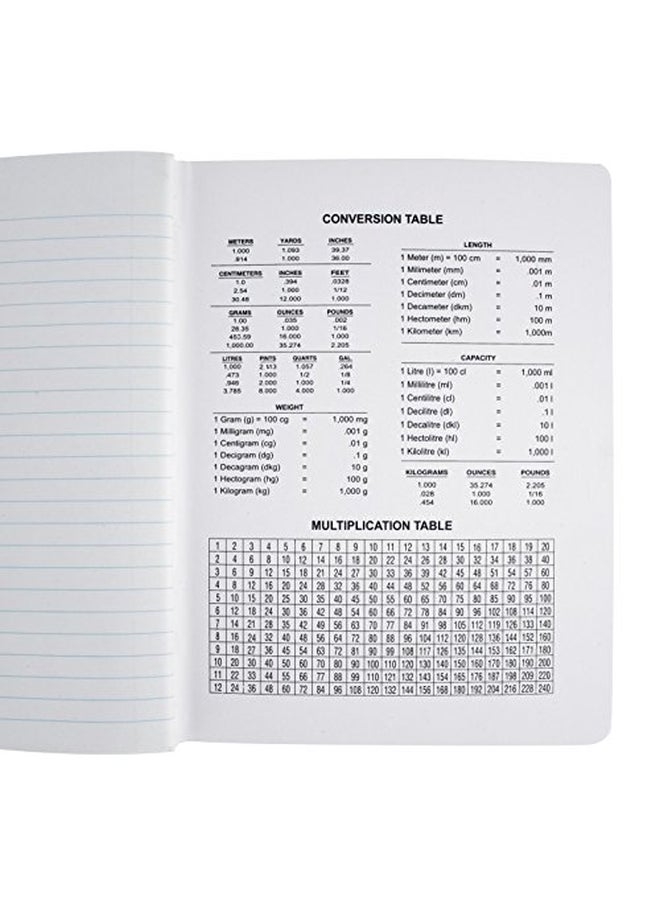 CONVERSION TABLE
METERS YARDS INCHES
1.000 1.093 39.37
.914 1.000 36.00
CENTIMETERS INCHES FEET
1.0 .394 .0328
2.54 1.000 1/12
30.48 12.000 1.000
GRAMS OUNCES POUNDS
1.00 .035 .002
28.35 1.000 1/16
453.59 16.000 1.000
1,000.00 35.274 2.205
LITRES PINTS QUARTS GAL.
1,000 2.113 1.057 .264
.473 1.000 1/2 1/8
.946 2.000 1.000 1/4
3.785 8.000 4.000 1.000
WEIGHT
1 Gram (g) = 100 cg = 1,000 mg
1 Milligram (mg) = .001 g
1 Centigram (cg) = .01 g
1 Decigram (dg) = .1 g
1 Decagram (dkg) = 10 g
1 Hectogram (hg) = 100 g
1 Kilogram (kg) = 1,000 g
LENGTH
1 Meter (m) = 100 cm = 1,000 mm
1 Milimeter (mm) = .001 m
1 Centimeter (cm) = .01 m
1 Decimeter (dm) = .1 m
1 Decameter (dkm) = 10 m
1 Hectometer (hm) = 100 m
1 Kilometer (km) = 1,000m
CAPACITY
1 Litre (l) = 100 cl = 1,000 ml
1 Millilitre (ml) = .001 l
1 Centilitre (cl) = .01 l
1 Decilitre (dl) = .1 l
1 Decalitre (dkl) = 10 l
1 Hectolitre (hl) = 100 l
1 Kilolitre (kl) = 1,000 l
KILOGRAMS OUNCES POUNDS
1.000 35.274 2.205
.028 1.000 1/16
.454 16.000 1.000
MULTIPLICATION TABLE
1 2 3 4 5 6 7 8 9 10 11 12 13 14 15 16 17 18 19 20
2 4 6 8 10 12 14 16 18 20 22 24 26 28 30 32 34 36 38 40
3 6 9 12 15 18 21 24 27 30 33 36 39 42 45 48 51 54 57 60
4 8 12 16 20 24 28 32 36 40 44 48 52 56 60 64 68 72 76 80
5 10 15 20 25 30 35 40 45 50 55 60 65 70 75 80 85 90 95 100
6 12 18 24 30 36 42 48 54 60 66 72 78 84 90 96 102 108 114 120
7 14 21 28 35 42 49 56 63 70 77 84 91 98 105 112 119 126 133 140
8 16 24 32 40 48 56 64 72 80 88 96 104 112 120 128 136 144 152 160
9 18 27 36 45 54 63 72 81 90 99 108 117 126 135 144 153 162 171 180
10 20 30 40 50 60 70 80 90 100 110 120 130 140 150 160 170 180 190 200
11 22 33 44 55 66 77 88 99 110 121 132 143 154 165 176 187 198 209 220
12 24 36 48 60 72 84 96 108 120 132 144 156 168 180 192 204 216 228 240